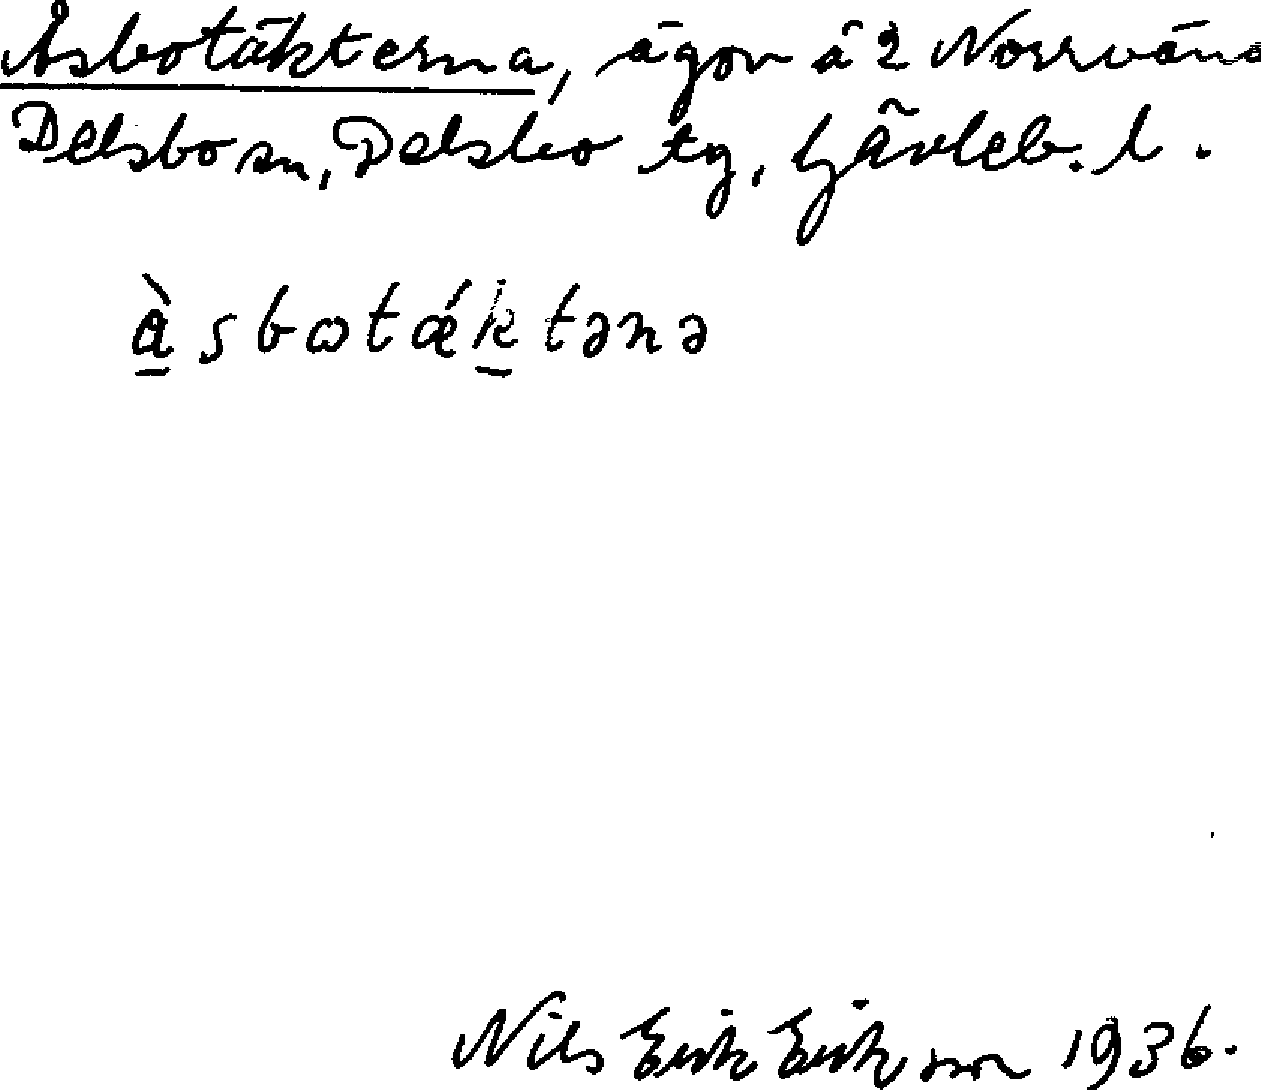 Åsbotäkterna, ägor å 2 Norrväna
Delsbo sn, Delsbo tg, Gävleb. l.
à̠sbωtǽk̠tənə
Nils Erik Eriksson 1936.